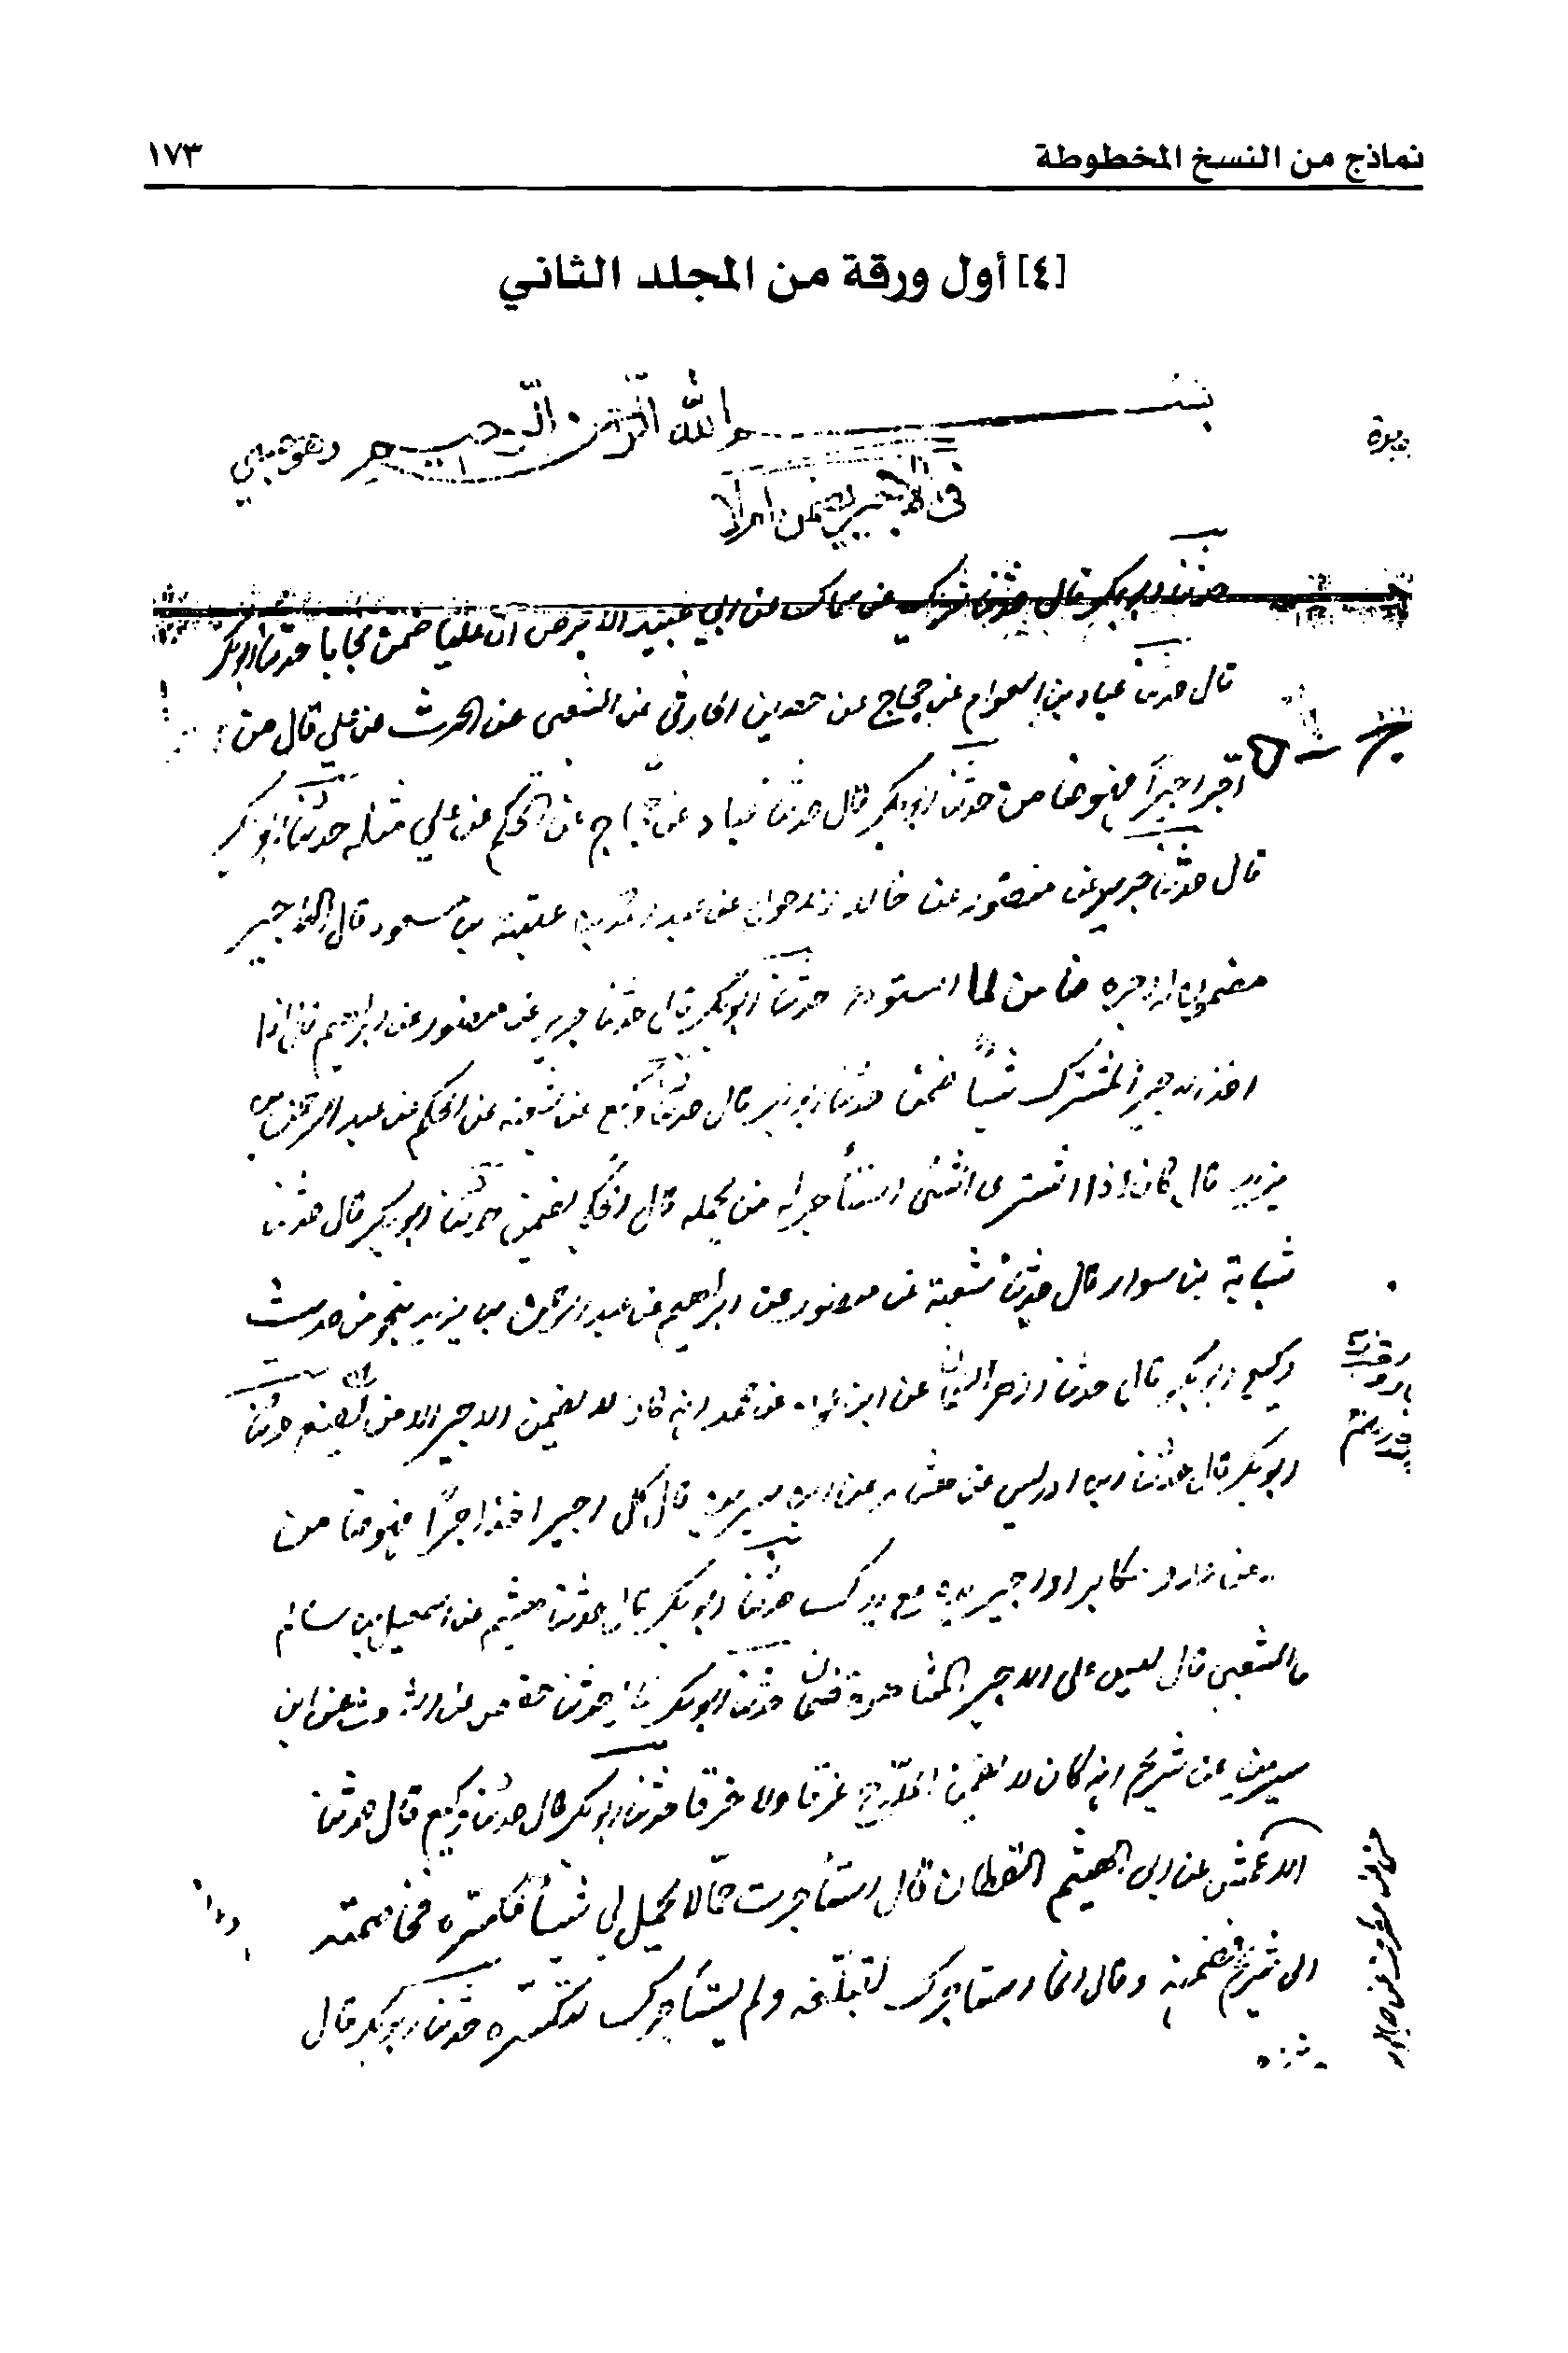 نماذج من النسخ المخطوطة ١٧٣
[٤] أول ورقة من المجلد الثاني
بسم الله الرحمن الرحيم وهو حسبي
في الاجير يضمن ام لا
حدثنا ابو بكر قال حدثنا شريك عن سماك عن ابي عبيد الابرص ان عليا ضمن نجارا حدثنا ابو بكر
قال حدثنا عباد بن العوام عن حجاج عن حصين الحارثي عن الشعبي عن الحرث عن علي قال من
اجر اجيرا فهو ضامن حدثنا ابو بكر قال حدثنا عباد عن حجاج عن الحكم عن علي مثله حدثنا ابو بكر
قال حدثنا جرير عن منصور عن خالد عن عبد بن عتبة بن مسعود قال اجير
مضمون له اجره ضامن لما استودع حدثنا ابو بكر قال حدثنا جرير عن منصور عن ابراهيم قال اذا
اخذ الاجير المشترك شيئا ضمن حدثنا ابو بكر قال حدثنا وكيع عن شعبة عن الحكم عن عبد الرحمن بن
يزيد قال كان اذا اشترى الشئ استأجر له من يحمله قال الحكم يضمن حدثنا ابو بكر قال حدثنا
شبابة بن سوار قال حدثنا شعبة عن منصور عن ابراهيم عن عبد الرحمن بن يزيد بنحو من حديث
وكيع ابو بكر قال حدثنا ازهر السمان عن ابن عون عن محمد انه كان لا يضمن الاجير الا من تضييع حدثنا
ابو بكر قال حدثنا ابن ادريس عن هشام عن ابن سيرين قال كل اجير اخذ اجرا فهو ضامن
الا من عدو مكابر او اجير يده مع يدك حدثنا ابو بكر قال حدثنا هشيم عن اسمعيل بن سالم
عن الشعبي قال ليس على الاجير المشاهرة ضمان حدثنا ابو بكر قال حدثنا حفص عن اشعث عن ابن
سيرين عن شريح انه كان لا يضمن الملاح غرقا ولا حرقا حدثنا ابو بكر قال حدثنا وكيع قال حدثنا
الاعمش عن ابي الهيثم القطان قال استأجرت حمالا يحمل لي شيئا فكسره فخاصمته
الى شريح فضمنه وقال انما استأجرك لتبلغه ولم يستأجرك لتكسره حدثنا ابو بكر قال